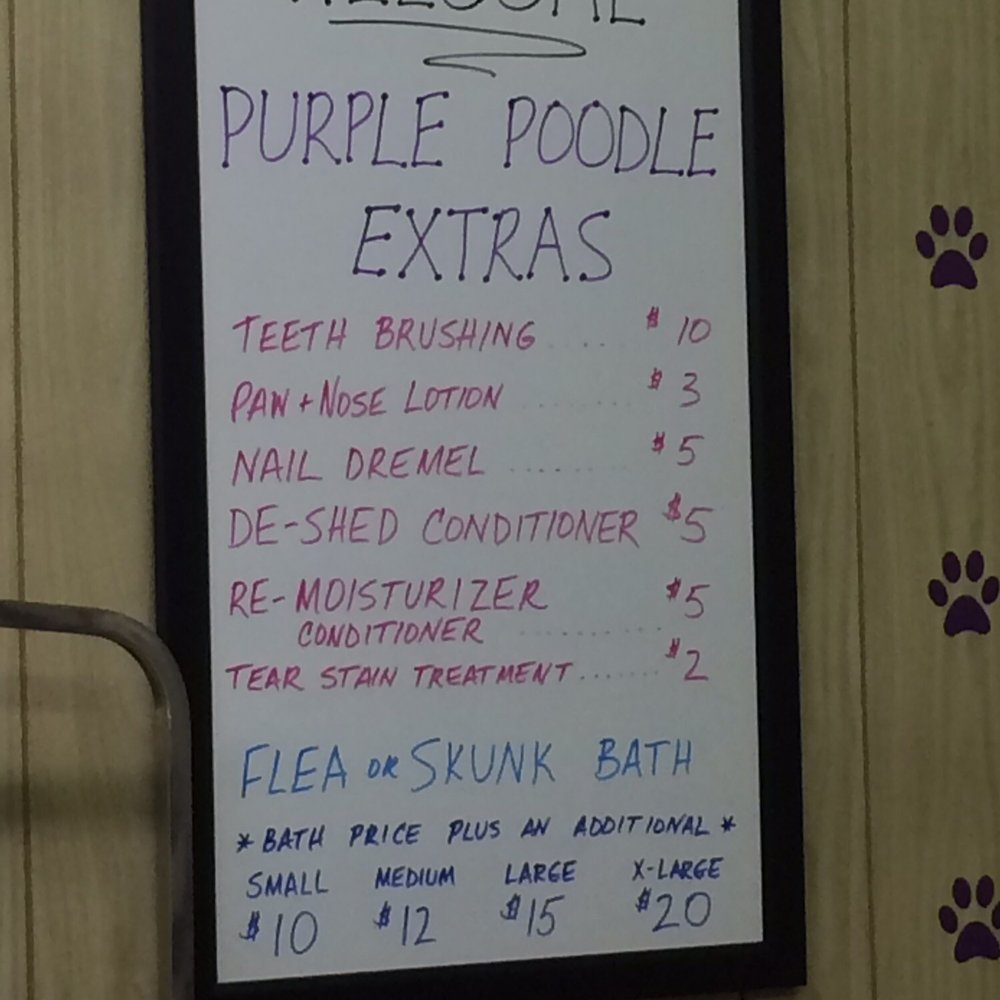 WELCOME
PURPLE POODLE
EXTRAS
TEETH BRUSHING .... $10
PAW + NOSE LOTION ........ $3
NAIL DREMEL ........ $5
DE-SHED CONDITIONER $5
RE-MOISTURIZER $5
CONDITIONER ..........
TEAR STAIN TREATMENT....... $2
FLEA OR SKUNK BATH
* BATH PRICE PLUS AN ADDITIONAL *
SMALL MEDIUM LARGE X-LARGE
$10 $12 $15 $20